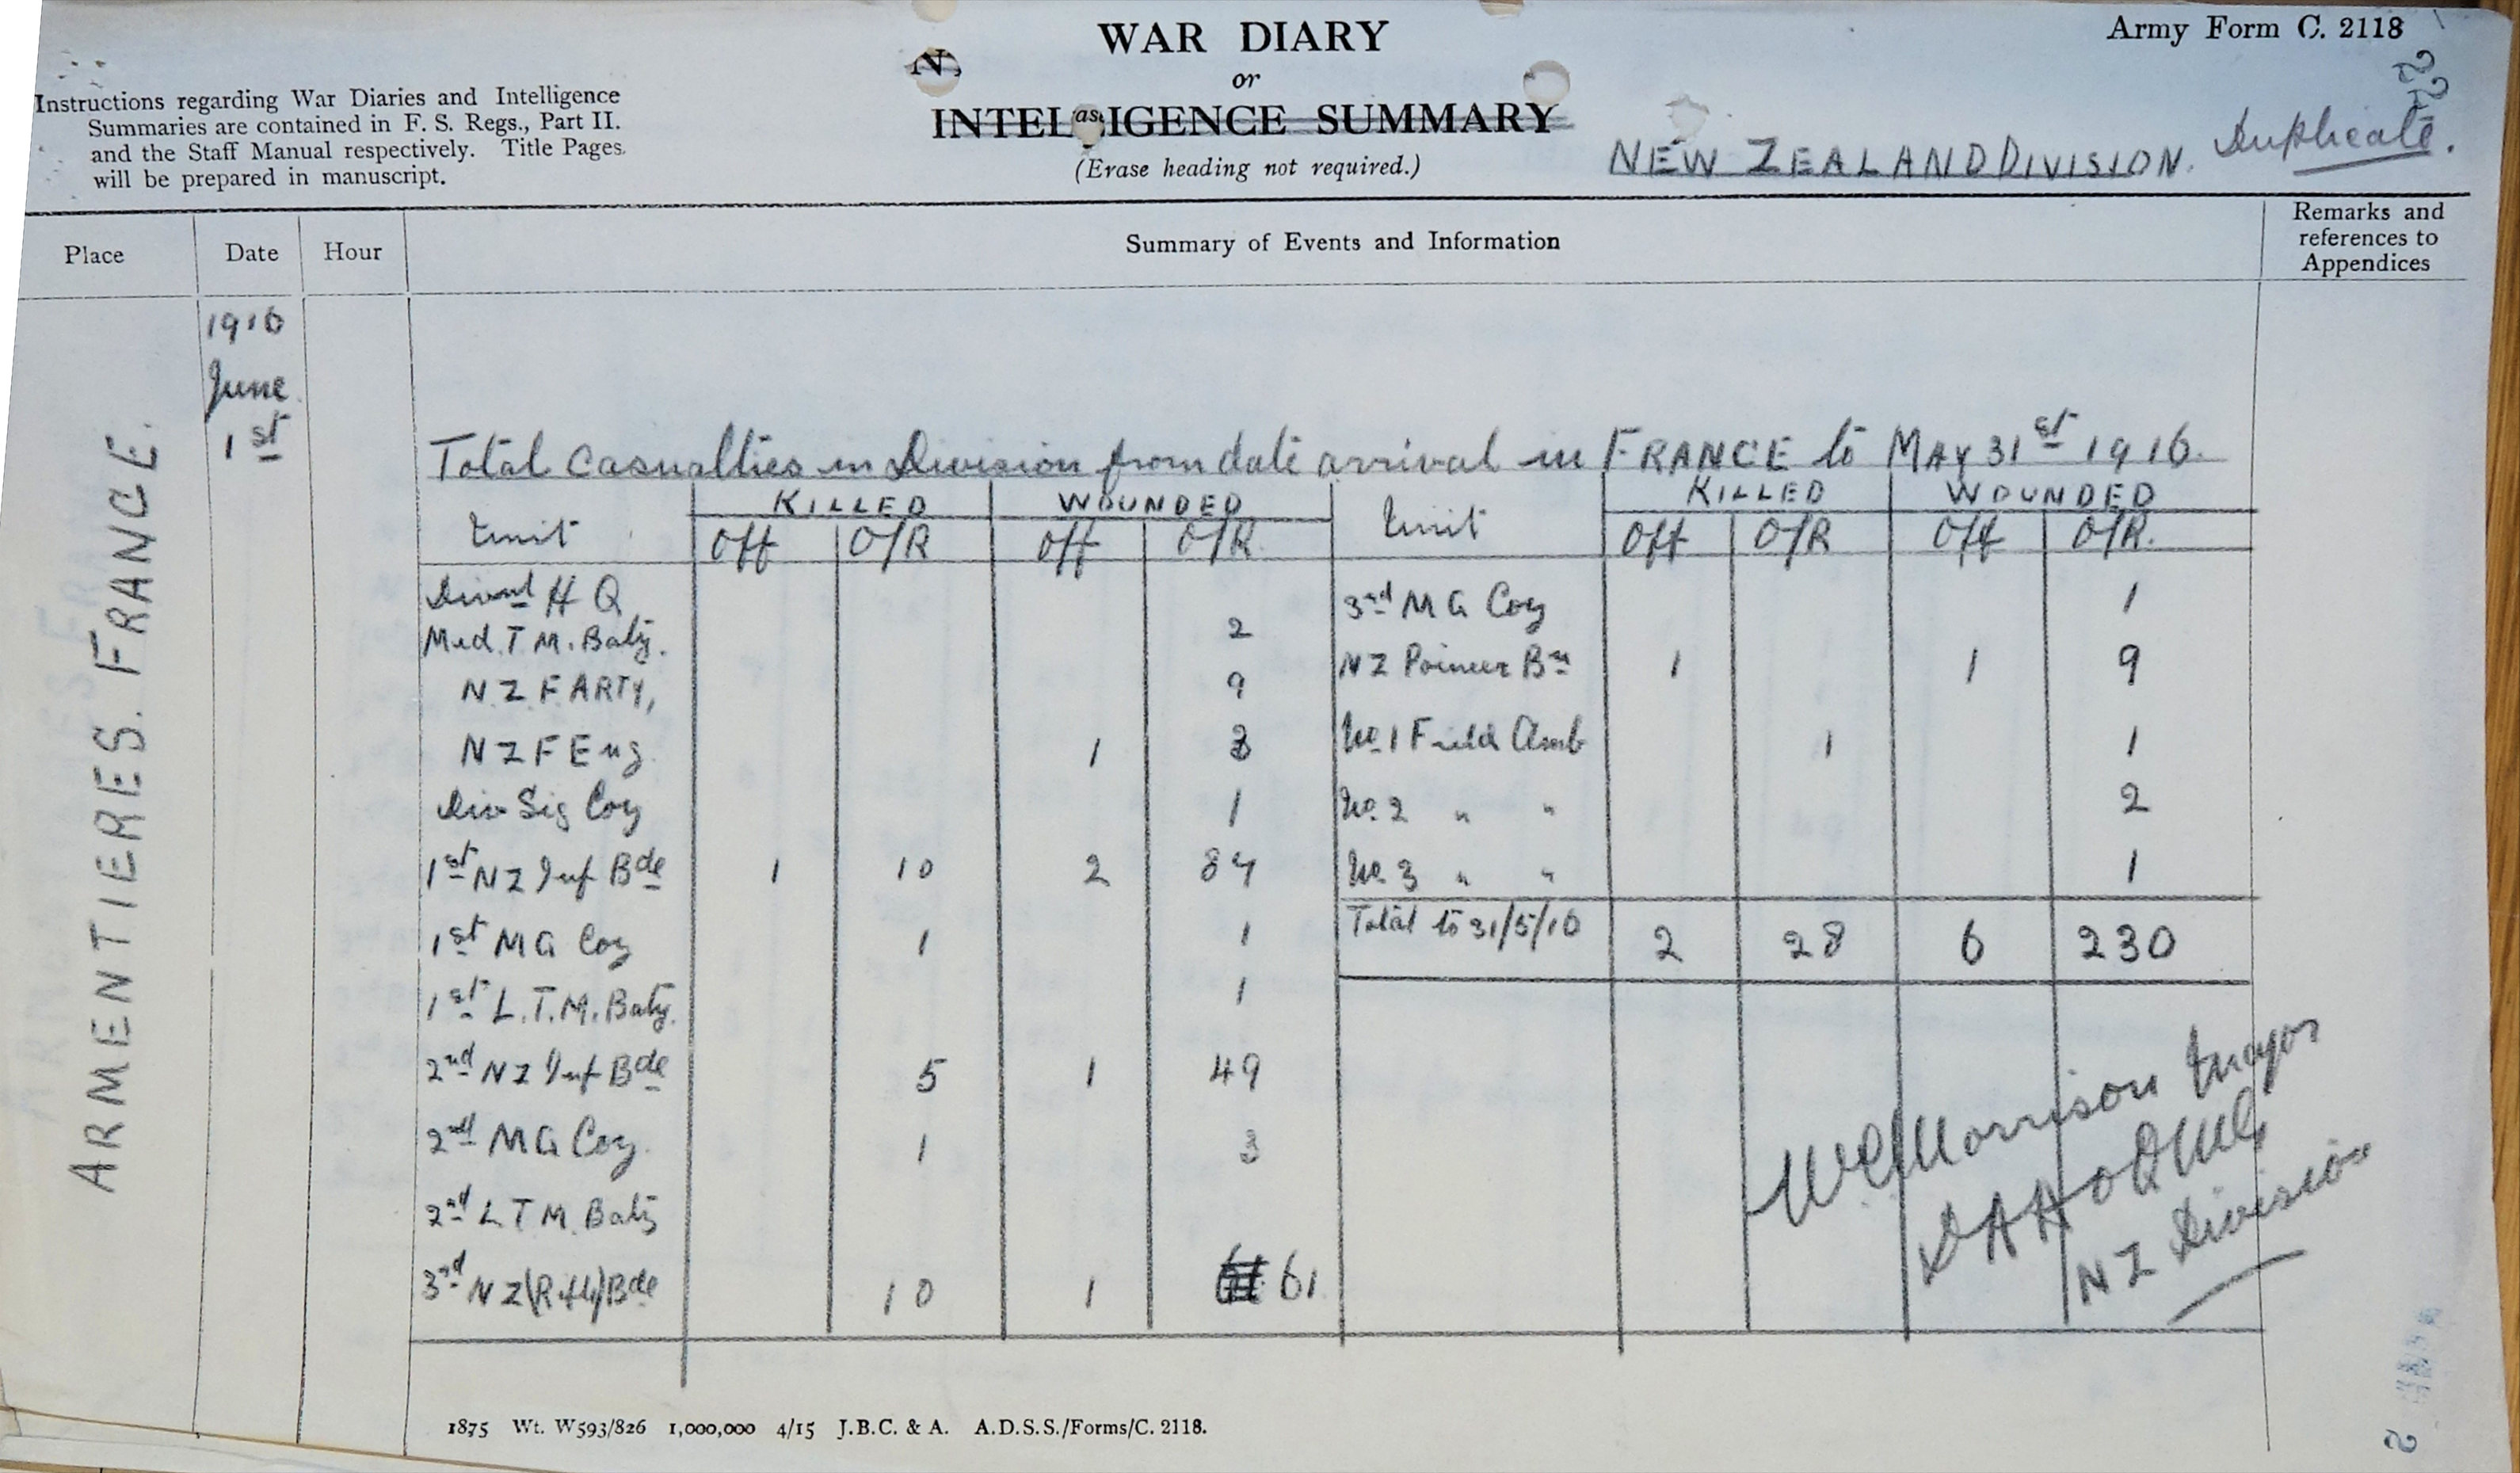 WAR DIARY
or
INTELLIGENCE SUMMARY
(Erase heading not required.)
Army Form C. 2118
22
Instructions regarding War Diaries and Intelligence
Summaries are contained in F. S. Regs., Part II.
and the Staff Manual respectively. Title Pages
will be prepared in manuscript.
NEW ZEALAND DIVISION. Duplicate.
Place Date Hour Summary of Events and Information Remarks and references to Appendices
ARMENTIERES. FRANCE.
1916
June
1st
Total Casualties in Division from date arrival in FRANCE to MAY 31st 1916.
Unit KILLED WOUNDED Unit KILLED WOUNDED
Off O/R Off O/R Off O/R Off O/R.
Divnl H Q 3rd M G Coy 1
Med. T. M. Baty. 2 NZ Poineer Bn 1 1 9
N. Z. F. ARTY, 9
N Z F Eng. 1 3 No. 1 Field Amb 1 1
Div Sig Coy 1 No. 2 " " 2
1st NZ Inf Bde 1 10 2 84 No. 3 " " 1
1st MG Coy 1 1 Total to 31/5/16 2 28 6 230
1st L. T. M. Baty. 1
2nd NZ Inf Bde 5 1 49
2nd MG Coy. 1 3
2nd L T M. Baty
3rd NZ (Rifle) Bde 10 1 61
W C Morrison Major
DAA & QMG
NZ Division
1875 Wt. W593/826 1,000,000 4/15 J.B.C. & A. A.D.S.S./Forms/C. 2118.
2